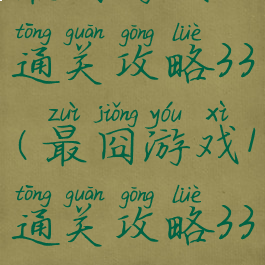 tōng guān gōng lüè
通关攻略33
zuì jiǒng yóu xì
(最囧游戏1
tōng guān gōng lüè
通关攻略33